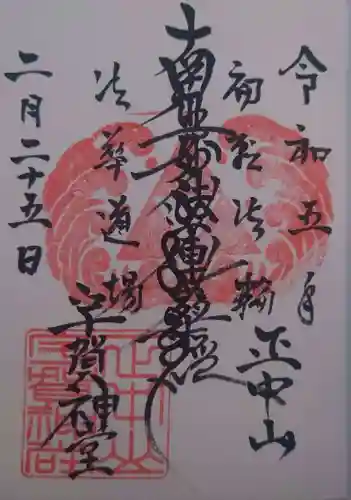 令和五年
正中山
初転法輪
南無妙法蓮華經
法華道場
宇賀神堂
二月二十五日